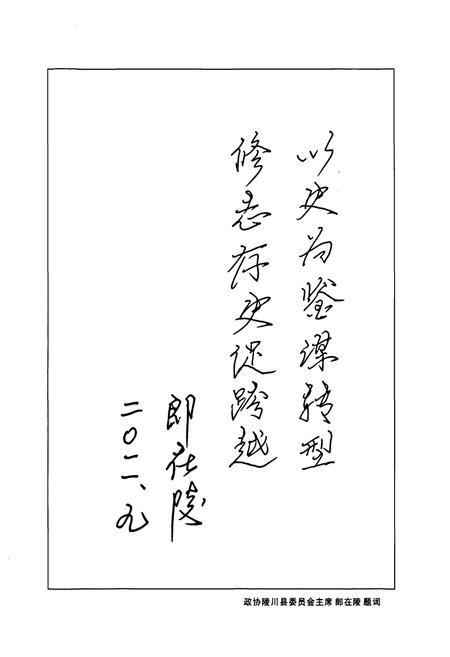 以史为鉴谋转型
修志存史促跨越
郎在陵
二〇一一、九
政协陵川县委员会主席 郎在陵 题词